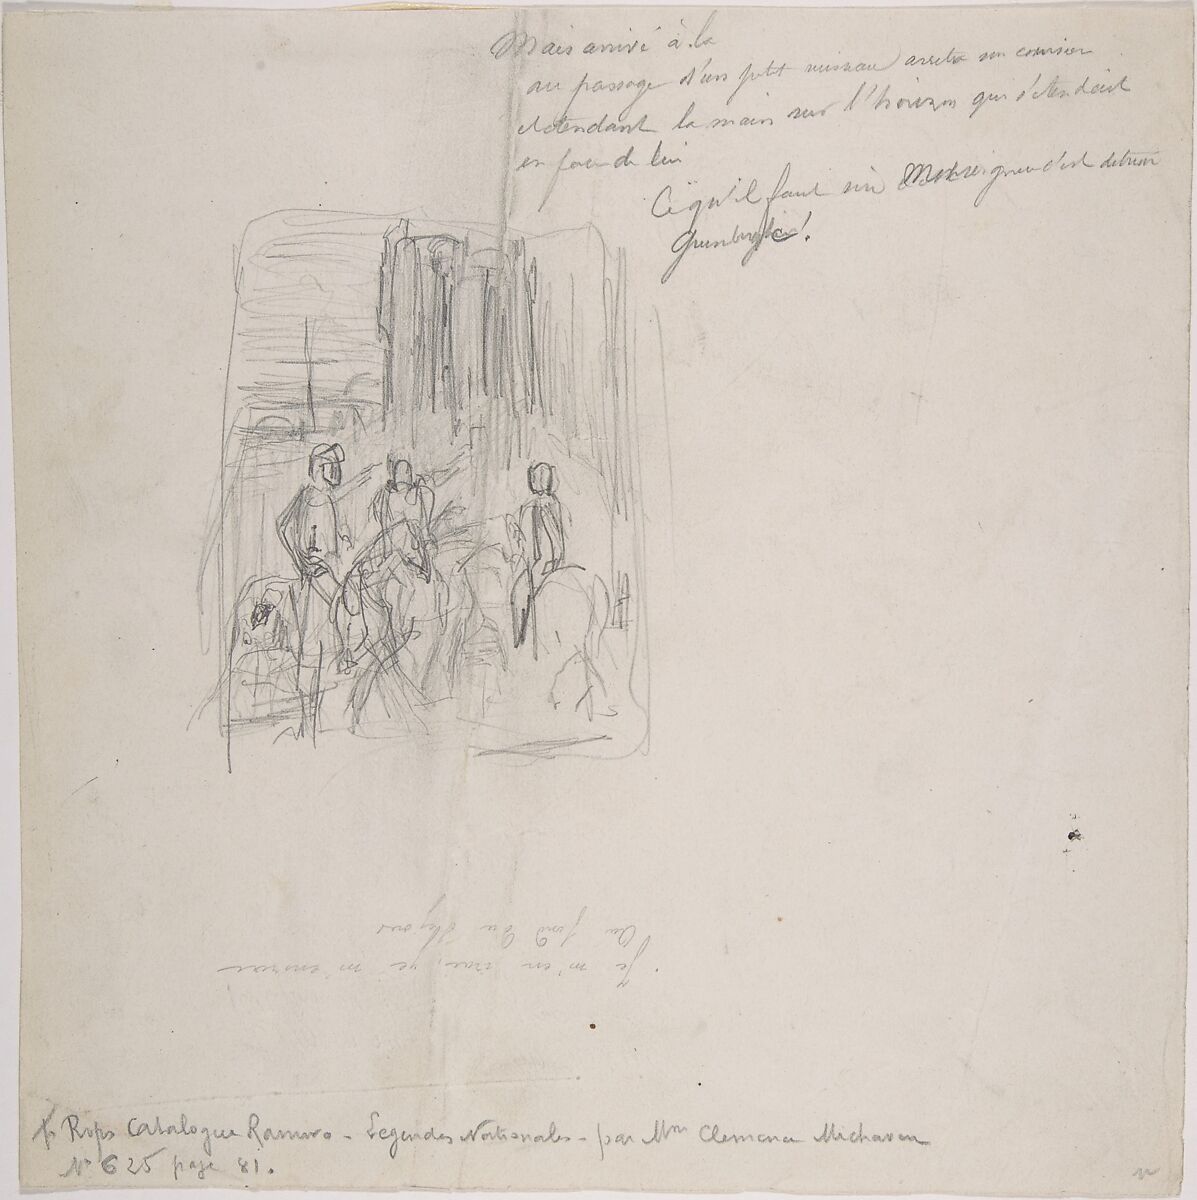 Mais arrivé à la
au passage d'un petit ruisseau arreta son coursier
et etendant la main sur l'horizon qui s'etendait
en face de lui
Ce qu'il faut Monseigneur c'est
Je m'en irai, je m'enirai
Au fond du
Rops Catalogue Ramiro - Legendes Nationales - par Mme Clemence Michaven
N° 625 page 81.